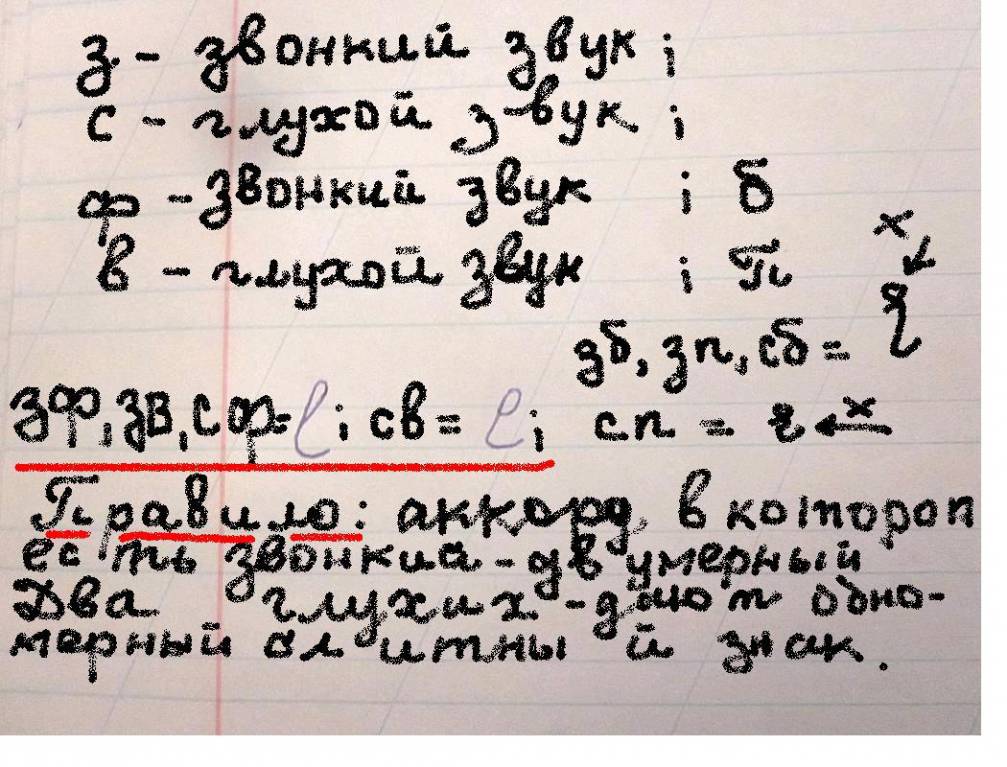 з - звонкий звук ;
с - глухой звук ;
ф - звонкий звук ; б
в - глухой звук ; п
х
зб, зп, сб =
зф, зв, сф = ; св = ; сп = х
Правило: аккорд, в котороп
есть звонкий - двумерный
Два глухих - дают одно-
мерный слитный знак.